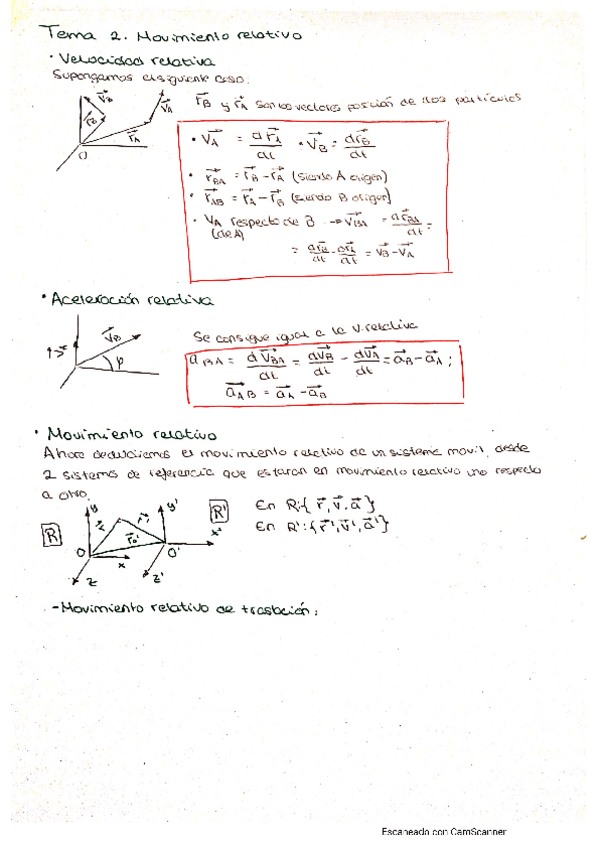 Tema 2. Movimiento relativo
· Velocidad relativa
Supongamos el siguiente caso:
r⃗B y r⃗A son los vectores posición de las partículas
v⃗B
v⃗A
r⃗B
r⃗A
O
· v⃗A = dr⃗A/dt · v⃗B = dr⃗B/dt
· r⃗BA = r⃗B - r⃗A (siendo A origen)
· r⃗AB = r⃗A - r⃗B (siendo B origen)
· VA respecto de B → v⃗BA = dr⃗BA/dt =
(de A)
= dr⃗B/dt - dr⃗A/dt = v⃗B - v⃗A
· Aceleración relativa
v⃗B
φ
Se consigue igual a la v. relativa
a⃗BA = dv⃗BA/dt = dv⃗B/dt - dv⃗A/dt = a⃗B - a⃗A ;
a⃗AB = a⃗A - a⃗B
· Movimiento relativo
Ahora deduciremos el movimiento relativo de un sistema movil, desde
2 sistemas de referencia que estaran en movimiento relativo uno respecto
a otro.
R
y
r⃗
r⃗'
y'
R'
r⃗o'
O
x
z
O'
x'
z'
En R:{r⃗, v⃗, a⃗}
En R':{r⃗', v⃗', a⃗'}
- Movimiento relativo de traslación:
Escaneado con CamScanner